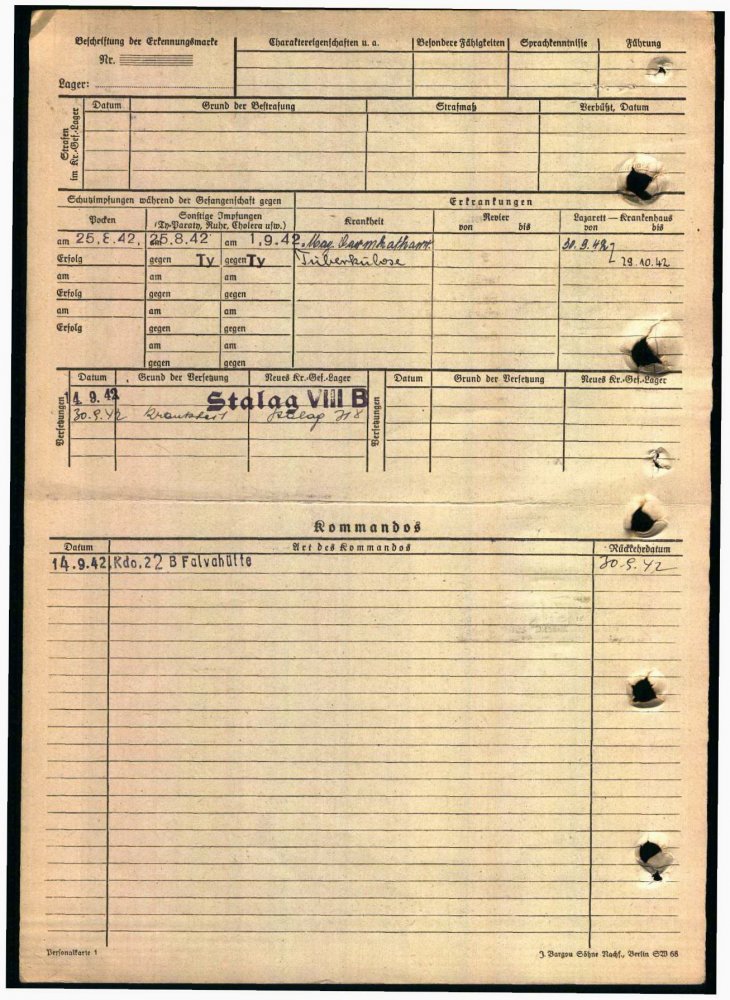 Beschriftung der Erkennungsmarke
Nr.
Lager:
Charaktereigenschaften u. a.
Besondere Fähigkeiten
Sprachkenntnisse
Führung
Strafen im Kr.-Gef.-Lager
Datum Grund der Bestrafung Strafmaß Verbüßt, Datum
Schutzimpfungen während der Gefangenschaft gegen
Erkrankungen
Pocken
Sonstige Impfungen
(Ty-Paraty, Ruhr, Cholera usw.)
Krankheit
Revier
von bis
Lazarett — Krankenhaus
von bis
am 25.8.42. 25.8.42 am 1.9.42. 30.9.42
Erfolg gegen Ty gegen Ty Tuberkulose 29.10.42
am am am
Erfolg gegen gegen
am am am
Erfolg gegen gegen
am am
gegen gegen
Versetzungen
Datum Grund der Versetzung Neues Kr.-Gef.-Lager
14.9.42 Stalag VIII B
30.9.42 Krankheit Stalag 318
Versetzungen
Datum Grund der Versetzung Neues Kr.-Gef.-Lager
Kommandos
Datum Art des Kommandos Rückkehrdatum
14.9.42. Kdo. 22 B Falvahütte 30.9.42
Personalkarte 1
J. Bargou Söhne Nachf., Berlin SW 68